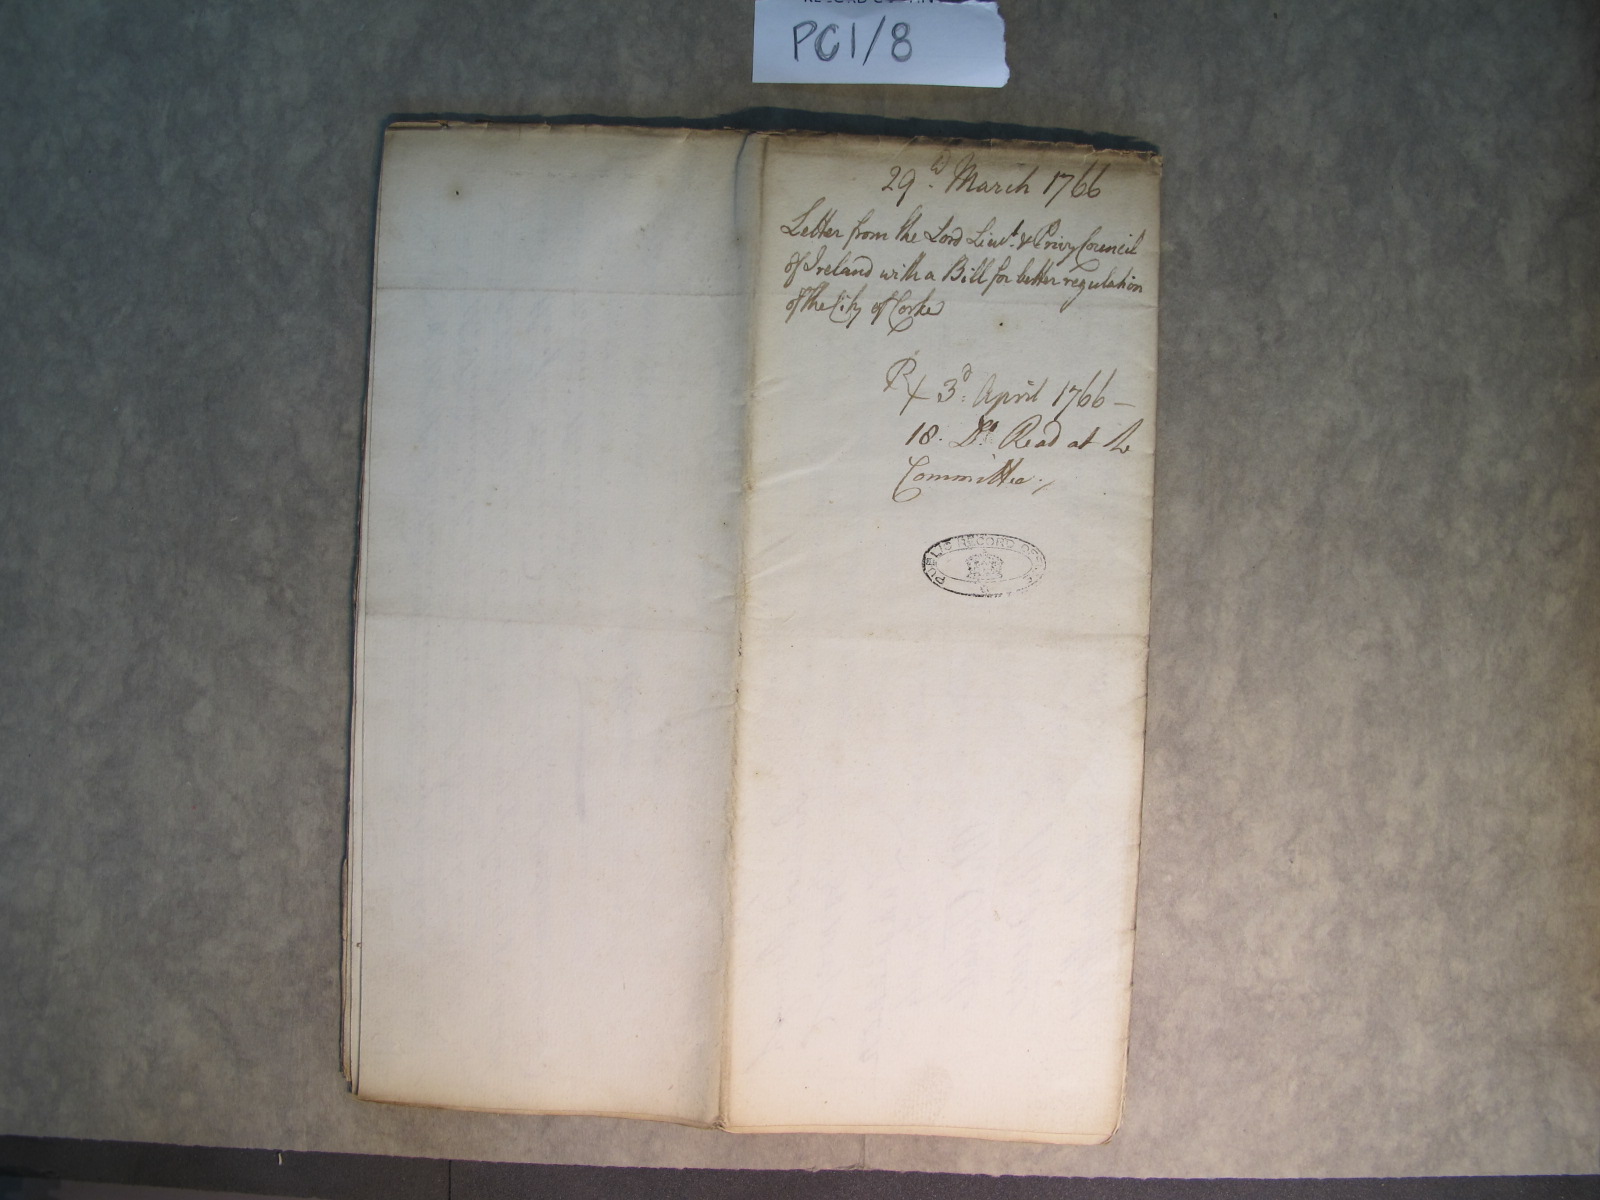 PC1/8
29th March 1766
Letter from the Lord Lieut. & Privy Council
of Ireland with a Bill for better regulation
of the City of Corke
Rx 3d. April 1766 —
18. Do. Read at the
Committee.
PUBLIC RECORD OFFICE